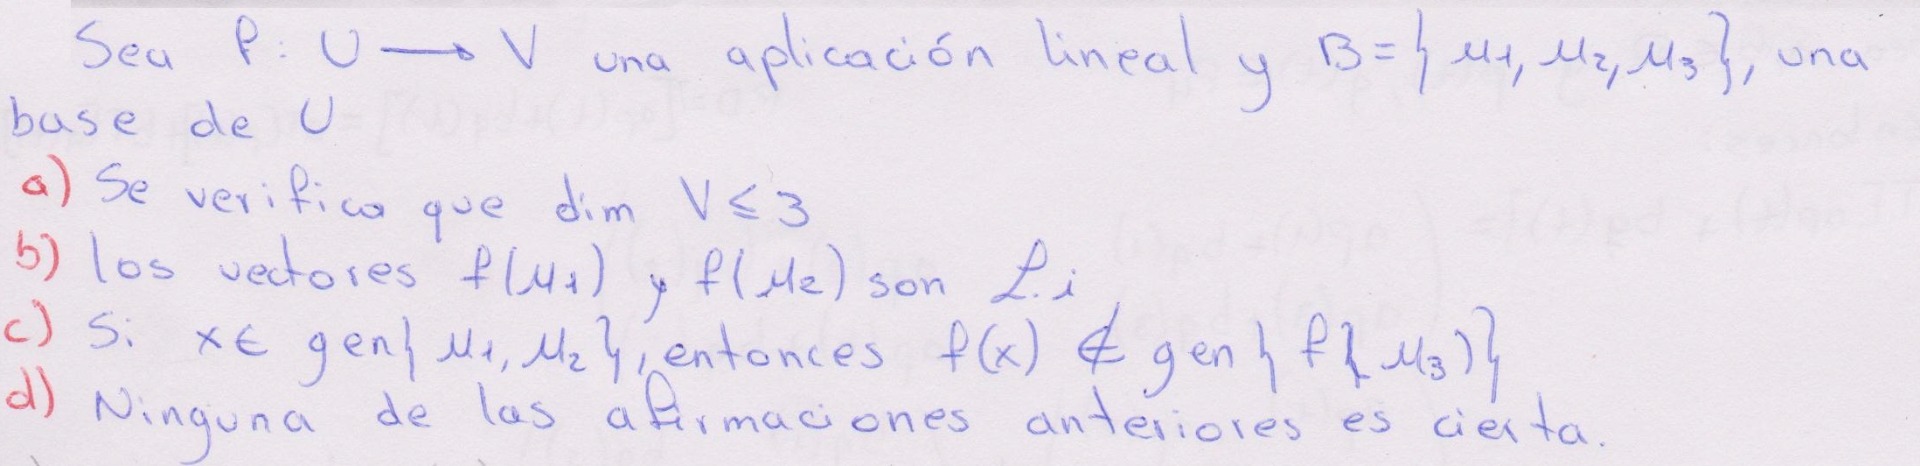 Sea f: U → V una aplicación lineal y B={u1, u2, u3}, una
base de U
a) Se verifica que dim V ≤ 3
b) los vectores f(u1) y f(u2) son L.i
c) Si x ∈ gen{u1, u2}, entonces f(x) ∉ gen{f(u3)}
d) Ninguna de las afirmaciones anteriores es cierta.